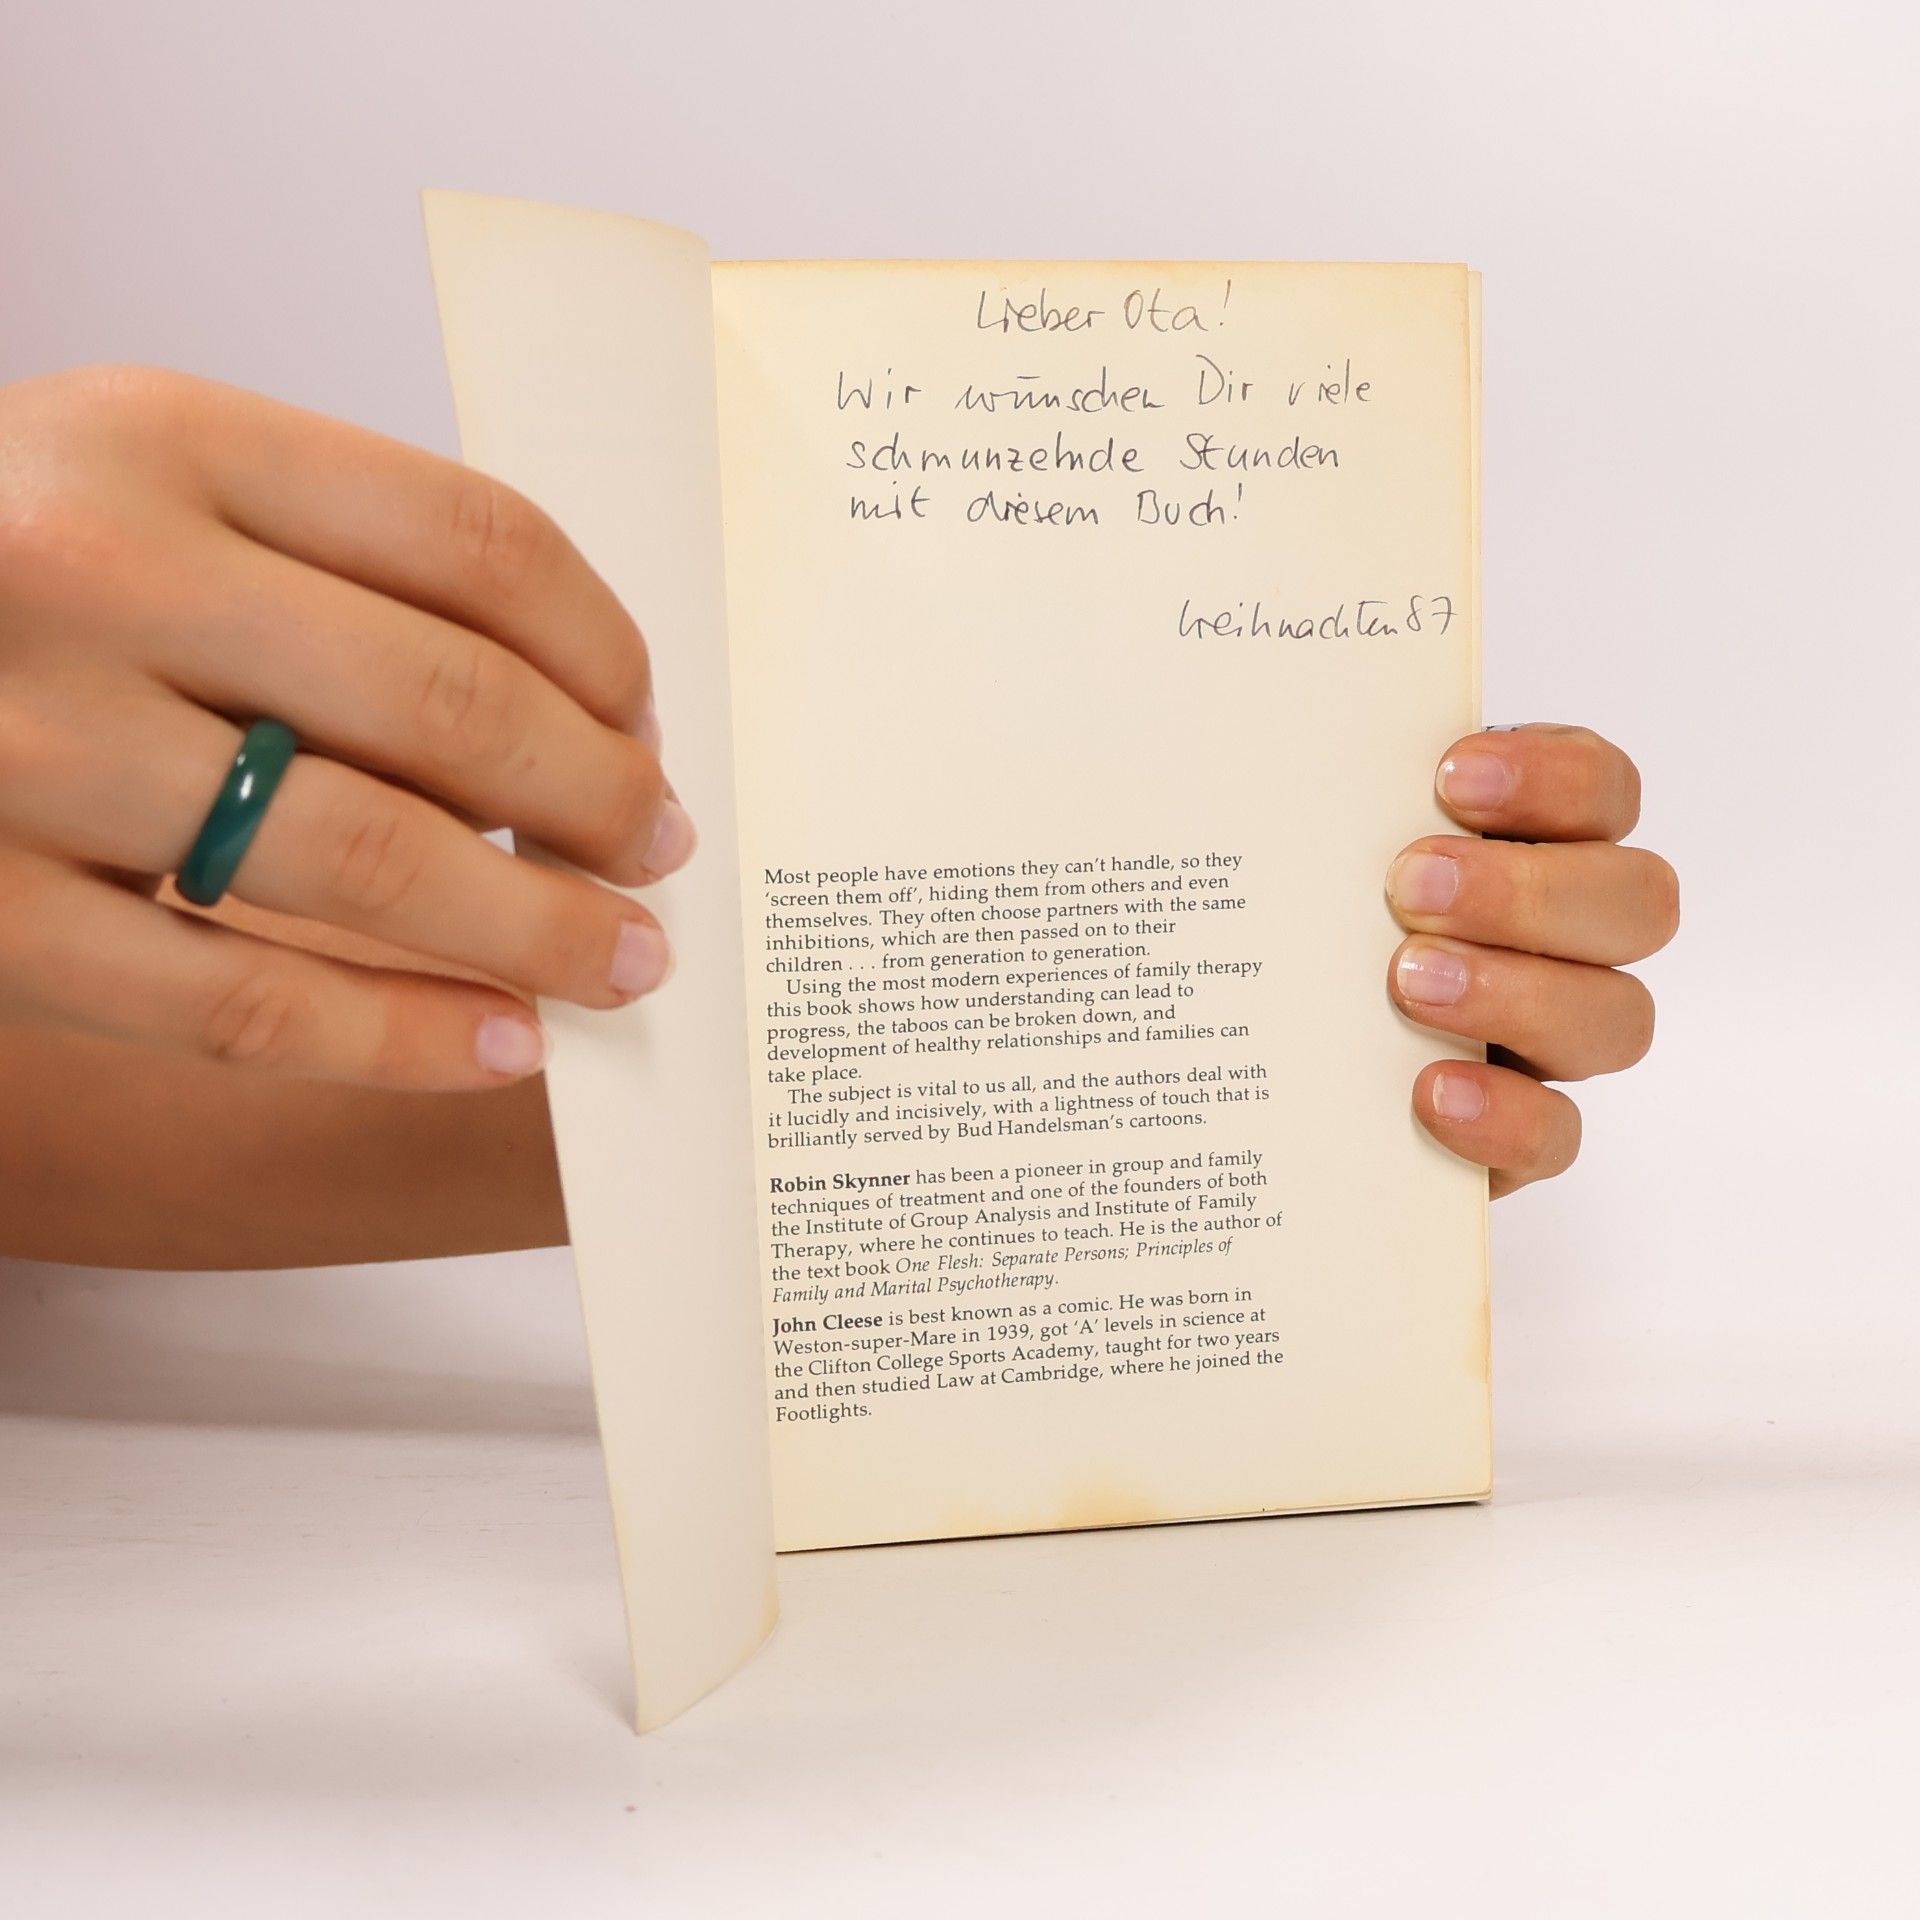 Lieber Ota!
Wir wünschen Dir viele
schmunzelnde Stunden
mit diesem Buch!
Weihnachten 87
Most people have emotions they can't handle, so they
'screen them off', hiding them from others and even
themselves. They often choose partners with the same
inhibitions, which are then passed on to their
children . . . from generation to generation.
Using the most modern experiences of family therapy
this book shows how understanding can lead to
progress, the taboos can be broken down, and
development of healthy relationships and families can
take place.
The subject is vital to us all, and the authors deal with
it lucidly and incisively, with a lightness of touch that is
brilliantly served by Bud Handelsman's cartoons.
Robin Skynner has been a pioneer in group and family
techniques of treatment and one of the founders of both
the Institute of Group Analysis and Institute of Family
Therapy, where he continues to teach. He is the author of
the text book One Flesh: Separate Persons; Principles of
Family and Marital Psychotherapy.
John Cleese is best known as a comic. He was born in
Weston-super-Mare in 1939, got 'A' levels in science at
the Clifton College Sports Academy, taught for two years
and then studied Law at Cambridge, where he joined the
Footlights.